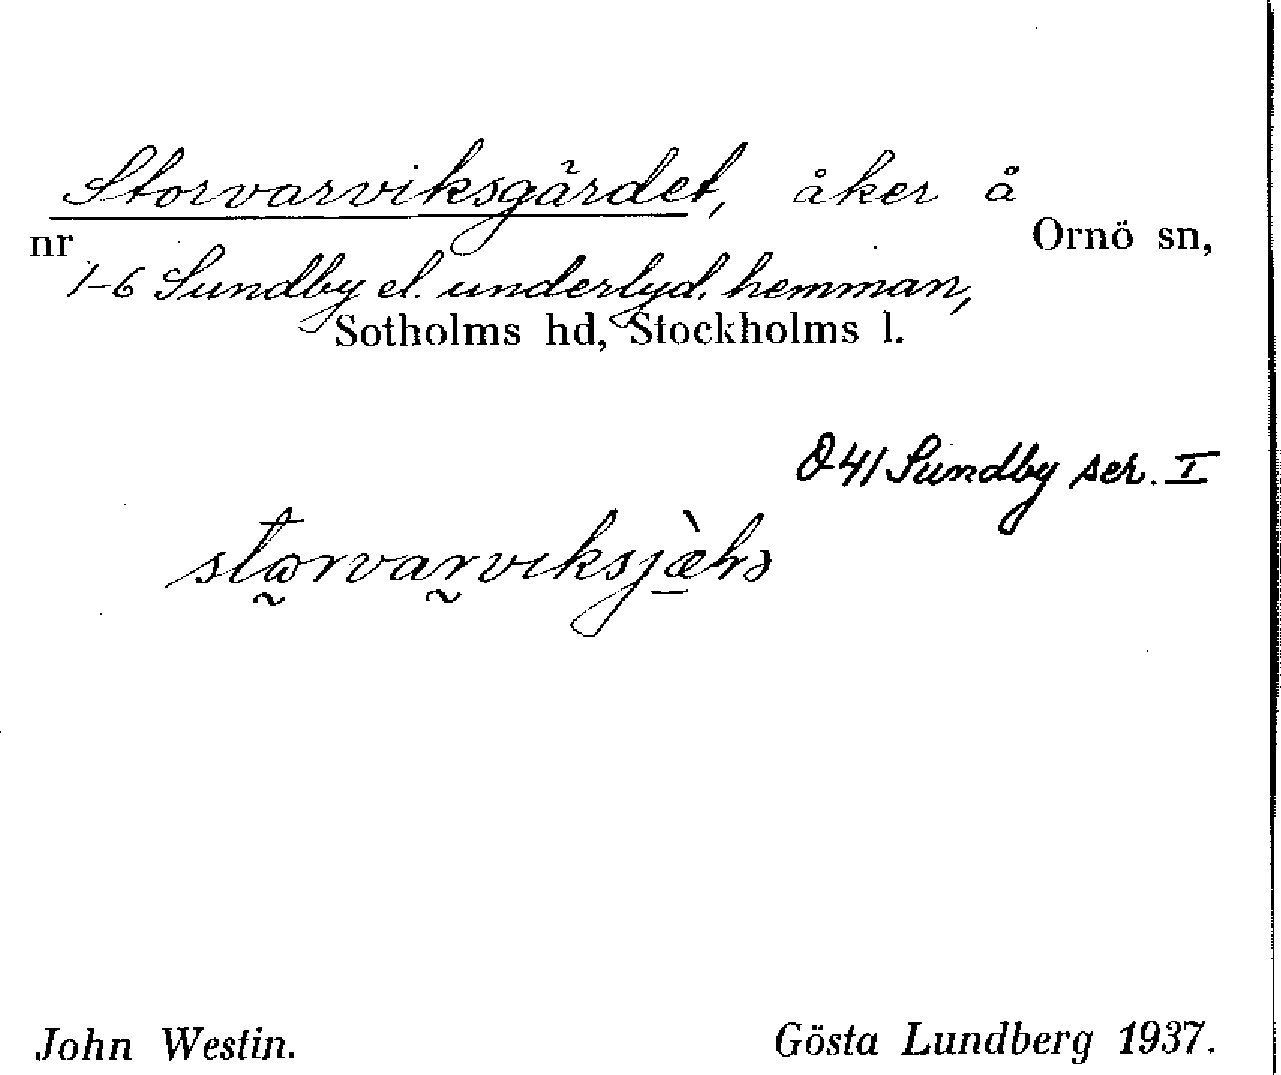 Storvarviksgärdet, åker å
nr Ornö sn,
1-6 Sundby el. underlyd. hemman,
Sotholms hd, Stockholms l.
041 Sundby ser. I
John Westin. Gösta Lundberg 1937.